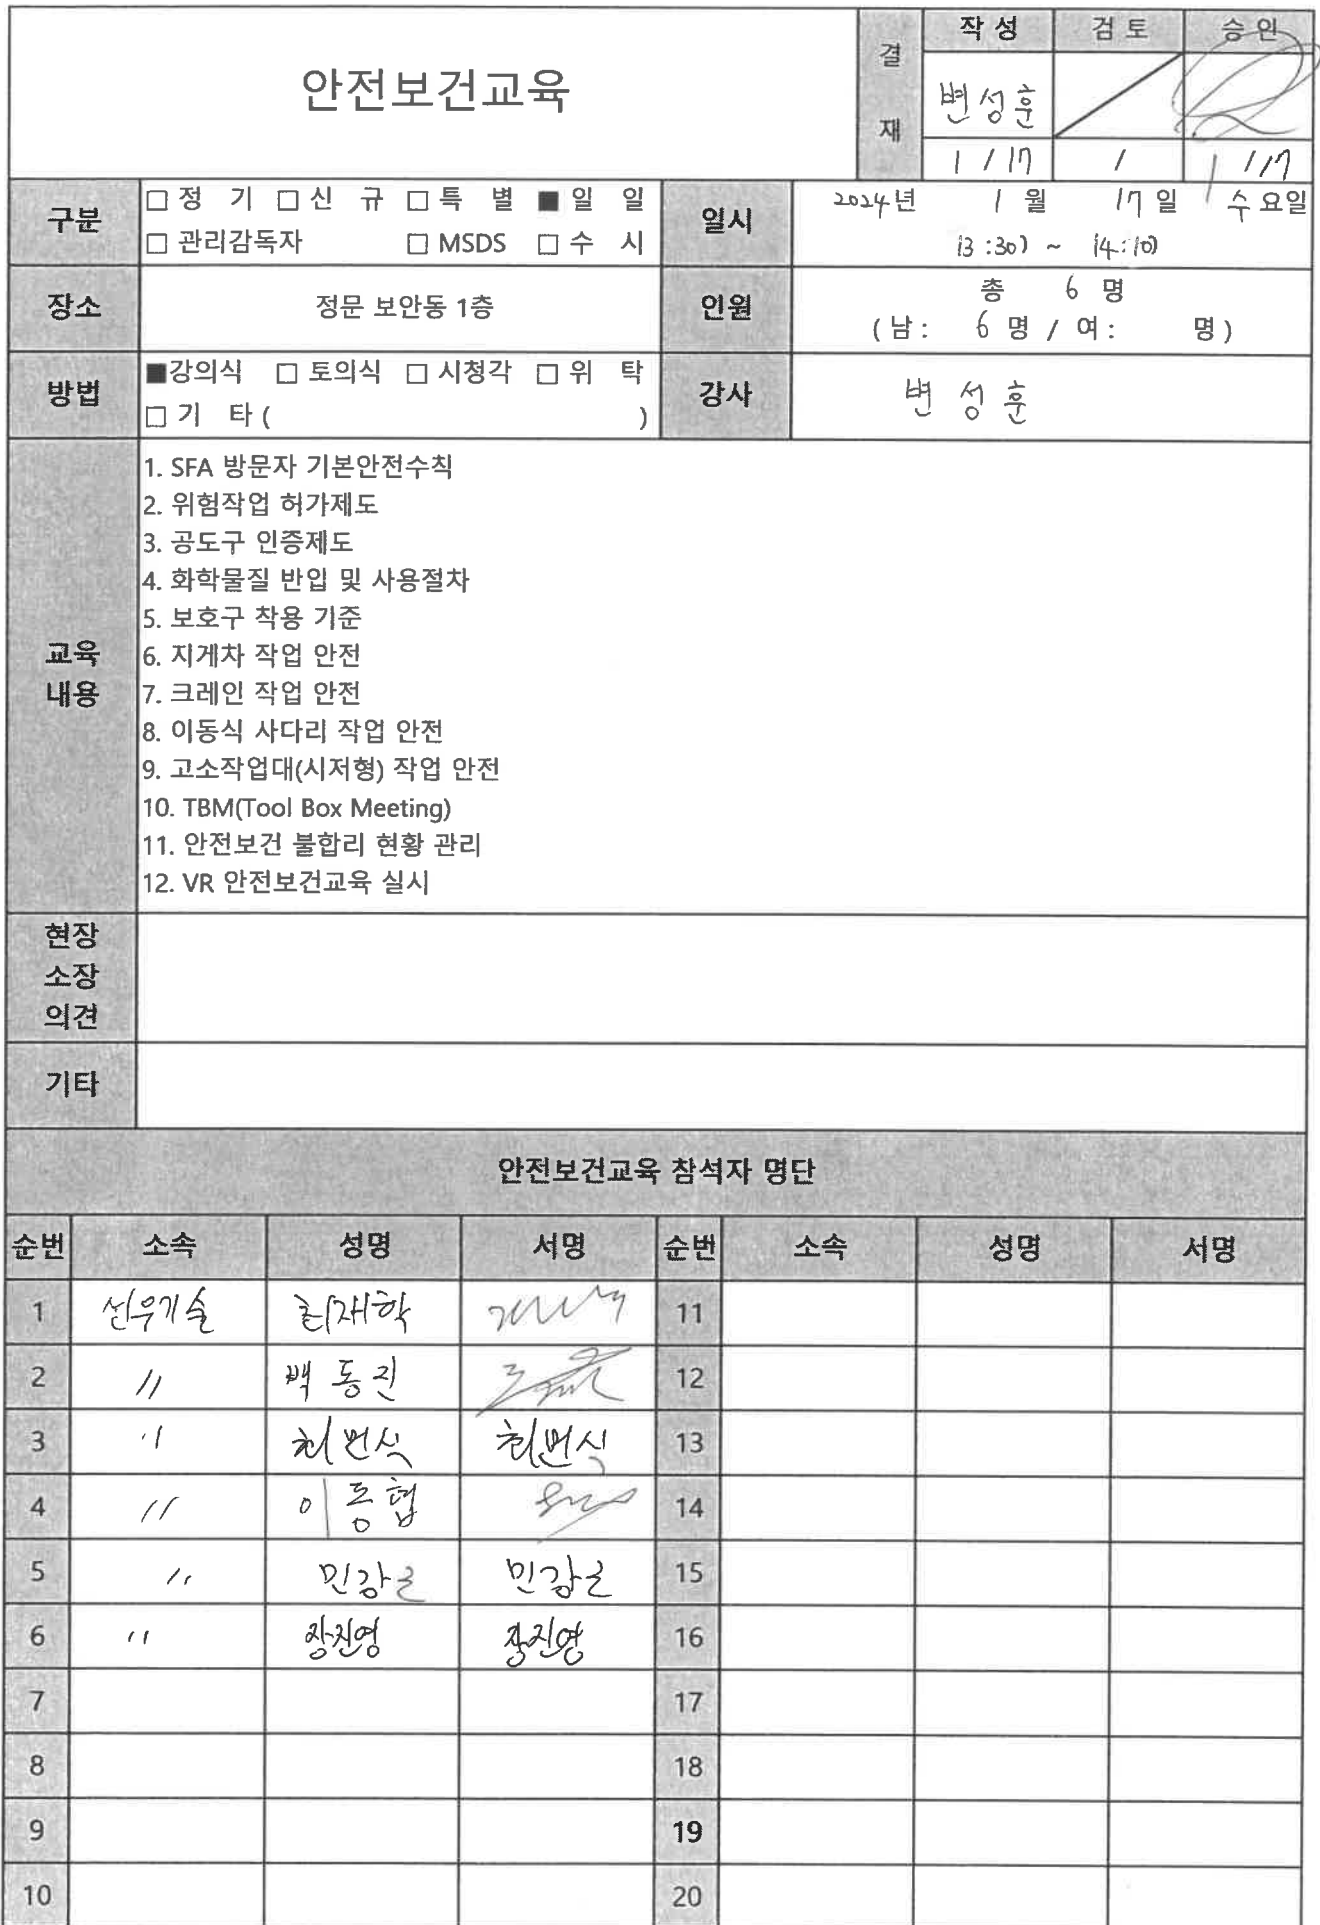 안전보건교육
결재 작성 검토 승인
변성훈
1 / 17 / 1 / 17
구분 □ 정 기 □ 신 규 □ 특 별 ■ 일 일
□ 관리감독자 □ MSDS □ 수 시
일시 2024년 1월 17일 수요일
13:30 ~ 14:10
장소 정문 보안동 1층
인원 총 6 명
( 남 : 6 명 / 여 : 명 )
방법 ■강의식 □ 토의식 □ 시청각 □ 위 탁
□ 기 타 ( )
강사 변성훈
교육
내용
1. SFA 방문자 기본안전수칙
2. 위험작업 허가제도
3. 공도구 인증제도
4. 화학물질 반입 및 사용절차
5. 보호구 착용 기준
6. 지게차 작업 안전
7. 크레인 작업 안전
8. 이동식 사다리 작업 안전
9. 고소작업대(시저형) 작업 안전
10. TBM(Tool Box Meeting)
11. 안전보건 불합리 현황 관리
12. VR 안전보건교육 실시
현장
소장
의견
기타
안전보건교육 참석자 명단
순번 소속 성명 서명 순번 소속 성명 서명
1 선우기술 최재학 11
2 〃 백동진 12
3 〃 13
4 〃 이동협 14
5 〃 15
6 〃 장진영 장진영 16
7 17
8 18
9 19
10 20